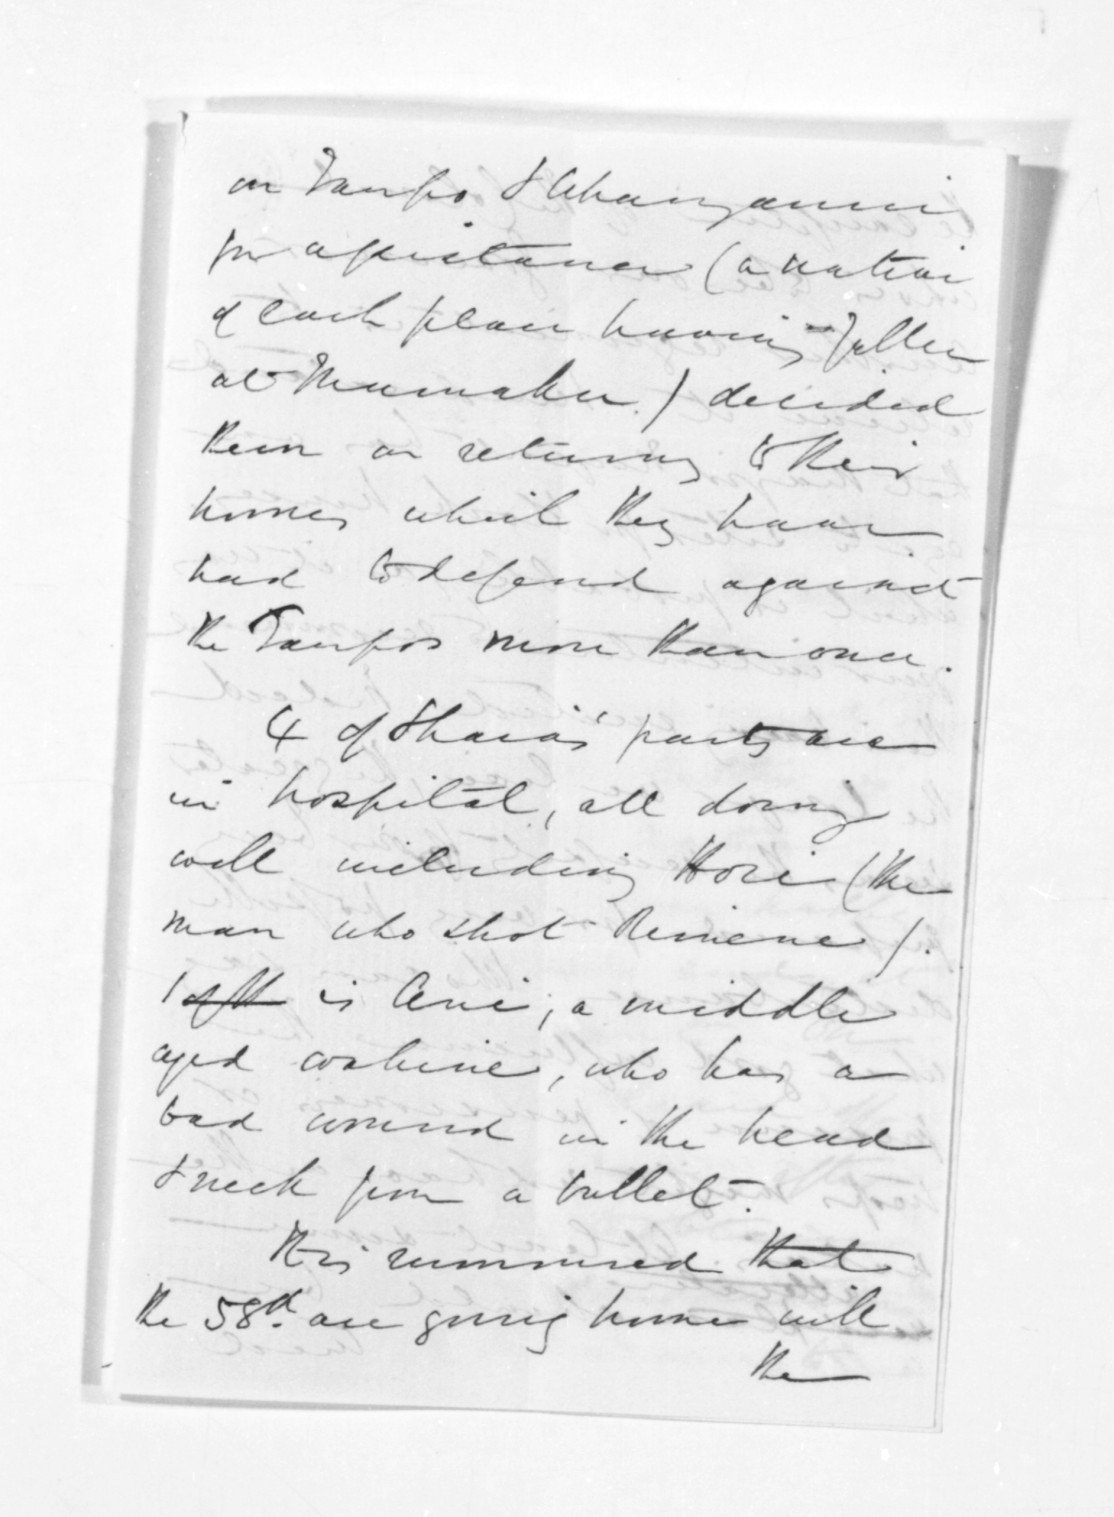 on Taupo & Whanganui
for assistance (a native
of each place having fallen
at Maemaku.) decided
them on returning to their
homes which they have
had to defend against
the Taupos more than once.
4 of Ihaia's party are
in hospital, all doing
well including Hori (the
man who shot Rimene).
1 of th is Ani; a middle
aged wahine, who has a
bad wound in the head
& neck from a bullet.
It is rumoured that
the 58th. are going home will
the